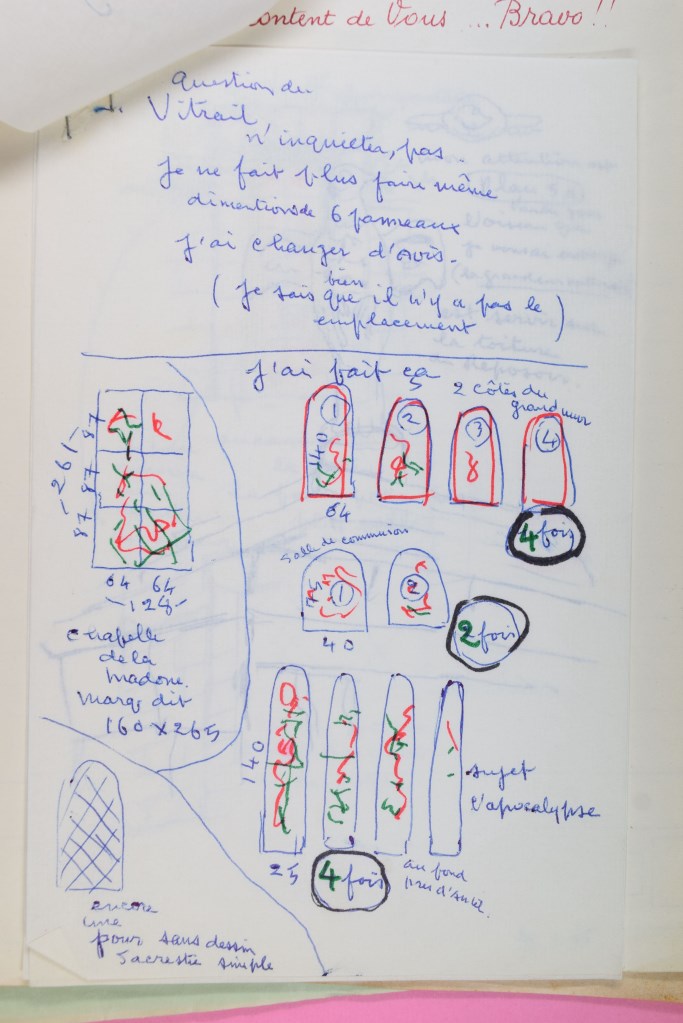 content de Vous ... Bravo !!
question du
Vitrail,
n'inquieter, pas.
je ne fait plus faire même
dimentions de 6 panneaux
J'ai changer d'avis.
bien
( je sais que il n'y a pas le )
emplacement
J'ai fait ça
2 côtés du
grand mur
1
2
3
4
140
64
4 fois
-261-
87
87
87
64 64
-128-
chapelle
de la
madone.
marq dit
160 x 265
Salle de communion
1
2
40
2 fois
140
25
4 fois
sujet
l'apocalypse
au fond
encore
une
pour sans dessin
Sacrestie simple